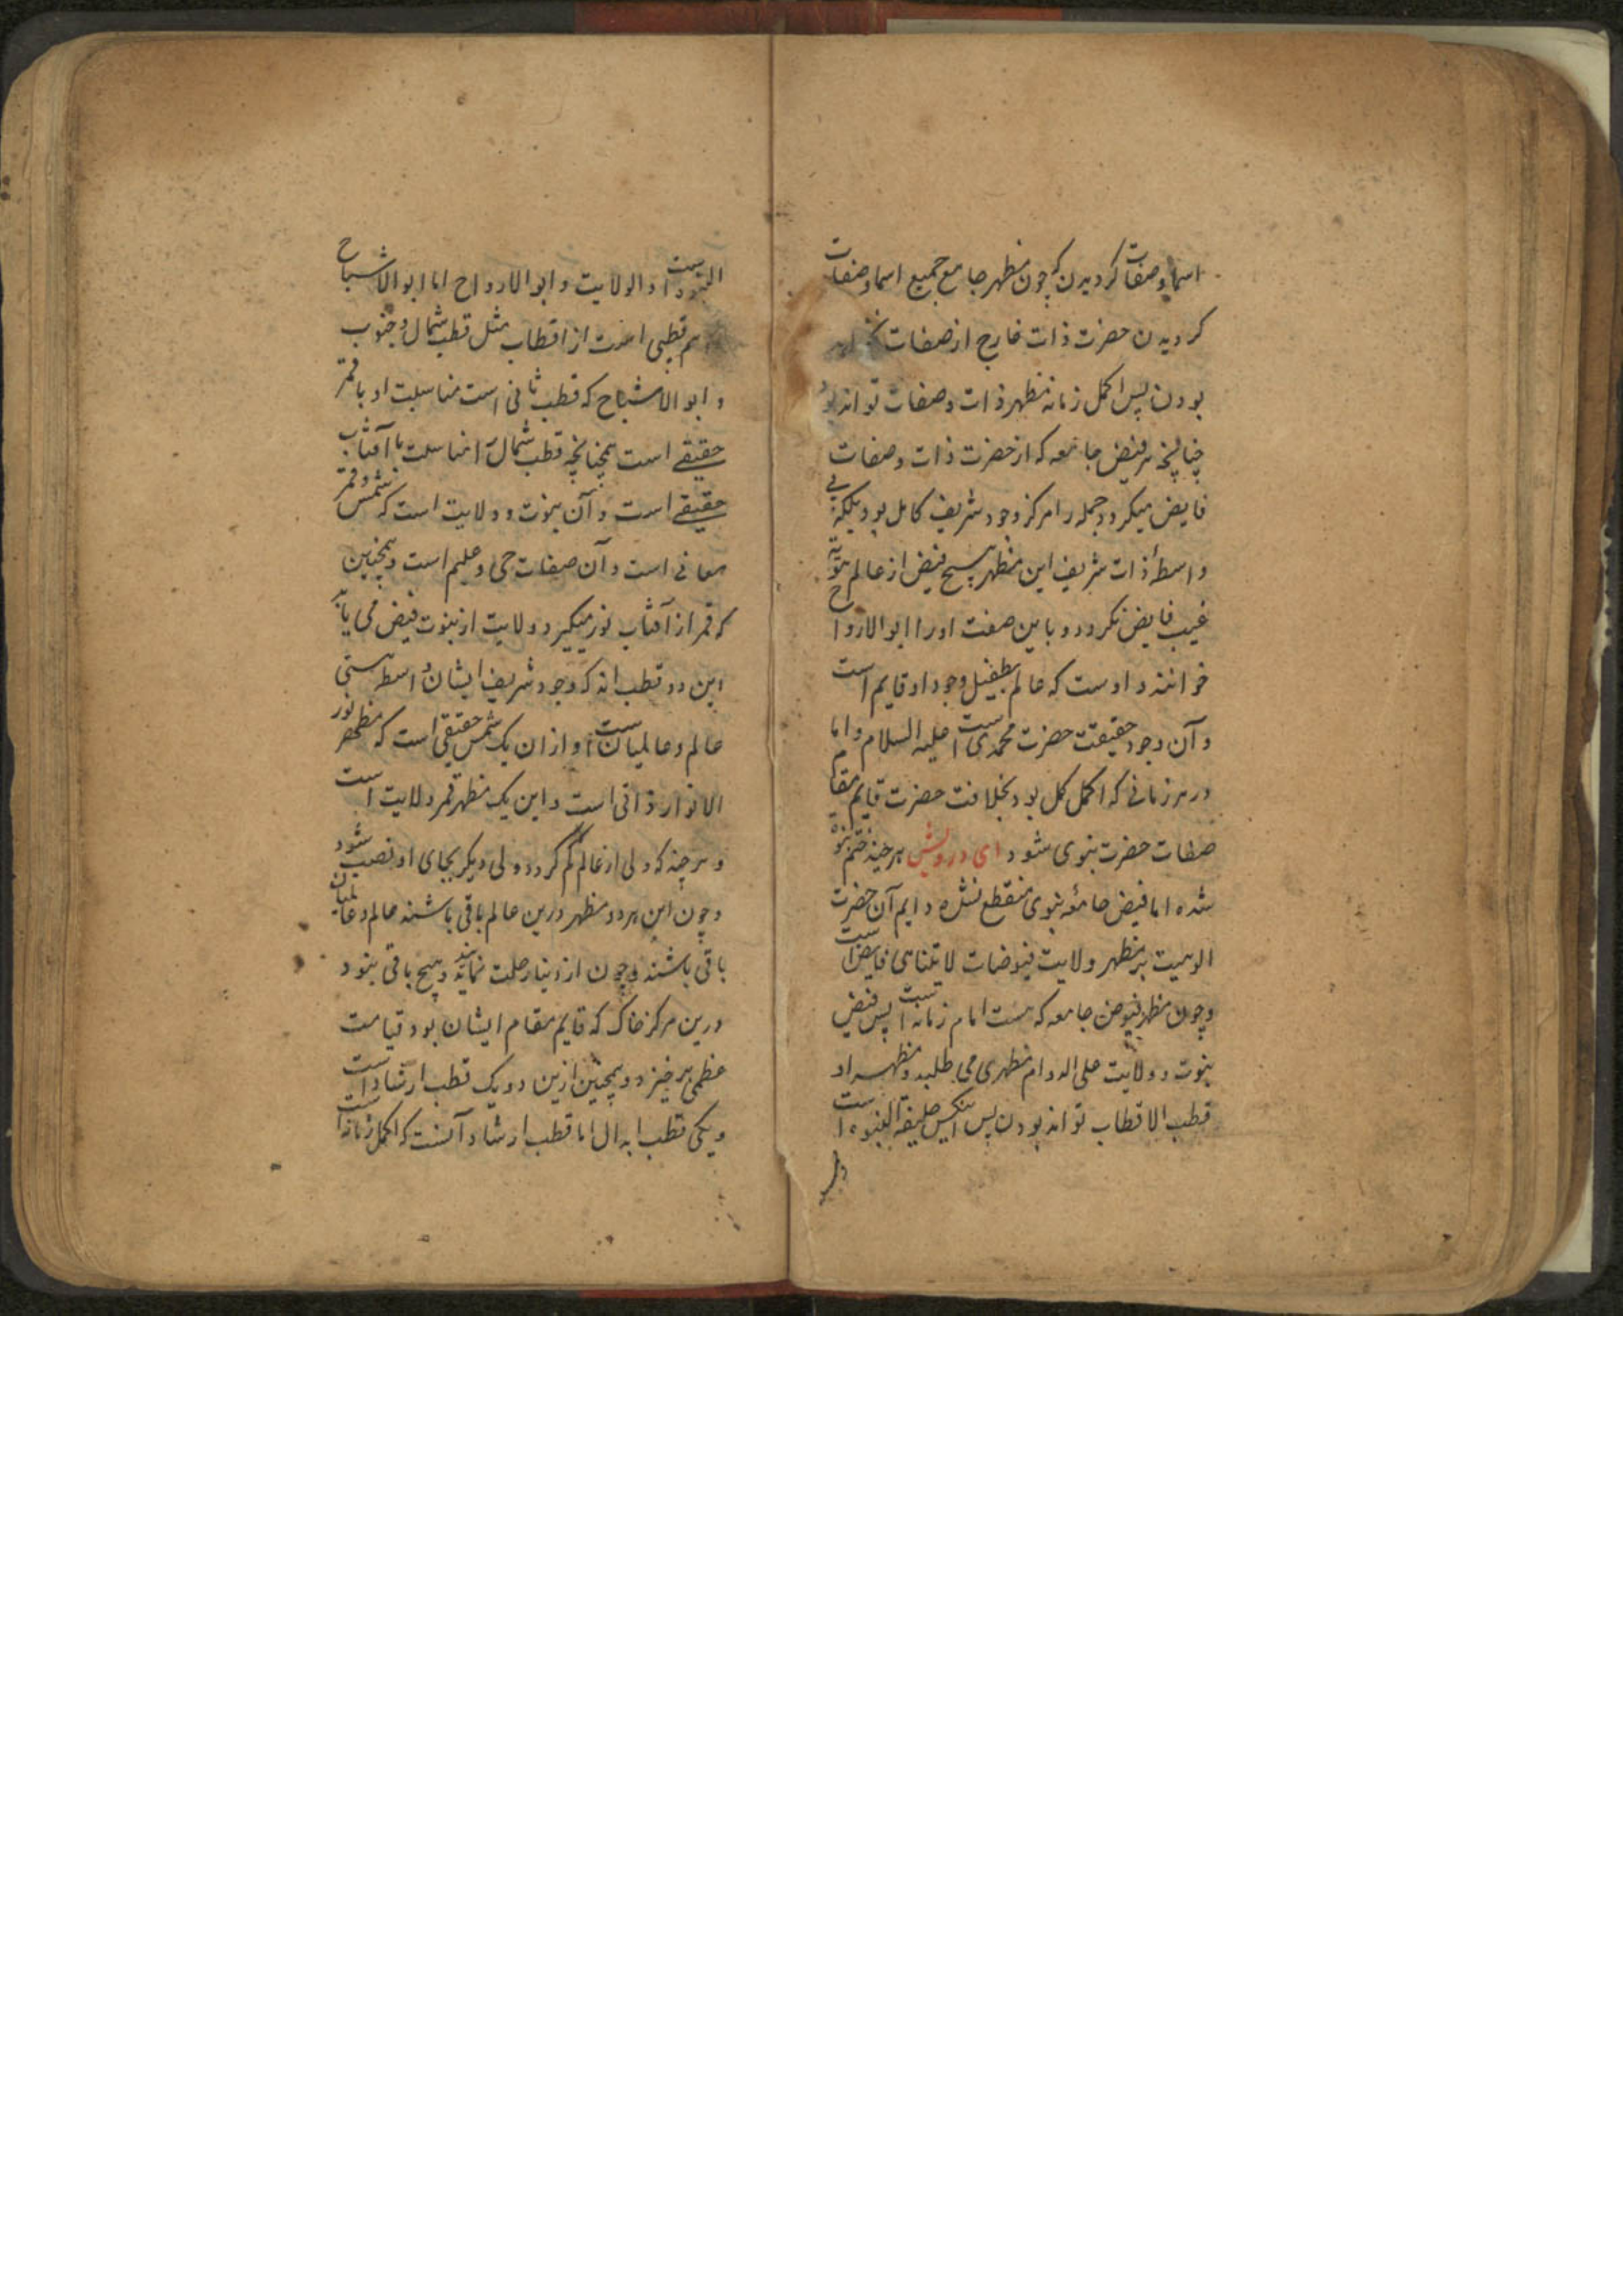 اسما و صفات گردیدن که چون مظهر جامع جمیع اسما و صفات
گردیدن حضرت ذات خارج از صفات
بودن پس اکمل زمانه مظهر ذات و صفات تواند بود
چنانچه هر فیض جامعه که از حضرت ذات و صفات
فایض میگردد جمله را مرکز وجود شریف کامل بود بلکه بی
واسطهٔ ذات شریف این مظهر هیچ فیض از عالم
غیب فایض نگردد و باین صفت او را ابو الارواح
خوانند و اوست که عالم بطفیل وجود او قایم است
و آن وجود حقیقت حضرت محمدی است علیه السلام و اما
در هر زمانی که اکمل کمل بود بخلافت حضرت قایم مقام
صفات حضرت نبوی شود ای درویش هر چند ختم نبوة
شده اما فیض جامعه نبوی منقطع نشده دایم آن حضرت
الوهیت بر مظهر ولایت فیوضات لا یتناهی فایض است
و چون مظهر فیوض جامعه که هست امام زمانه است پس فیض
نبوت و ولایت علی الدوام مظهری می طلبد و مظهر او
قطب الاقطاب تواند بودن پس اینکس خلیفة النبوه است
النبوة است و الولایت و ابو الارواح اما ابو الاشباح
هم قطبی است از اقطاب مثل قطب شمال و جنوب
و ابو الاشباح که قطب ثانی است مناسبت او با قمر
حقیقے است همچنانچه قطب شمال را مناسبت با آفتاب
حقیقے است و آن نبوت و ولایت است که شمس و قمر
معانی است و آن صفات حی و علیم است و همچنین
که قمر از آفتاب نور میگیرد ولایت از نبوت فیض می یابد
این دو قطب اند که وجود شریف ایشان واسطه هستی
عالم و عالمیان است و از ان یک شمس حقیقی است که مظهر نور
الانوار ذاتی است و این یک مظهر قمر ولایت است
و هر چند که ولی از عالم کم گردد ولی دیگر بجای او نصب شود
و چون این هر دو مظهر درین عالم باقی باشند عالم و عالمیان
باقی باشند و چون از دنیا رحلت نمایند و هیچ باقی نبود
درین مرکز خاک که قایم مقام ایشان بود قیامت
عظمی بر خیزد و همچنین ازین دو یک قطب ارشاد است
و یکی قطب ابدال اما قطب ارشاد آنست که اکمل زمانه است